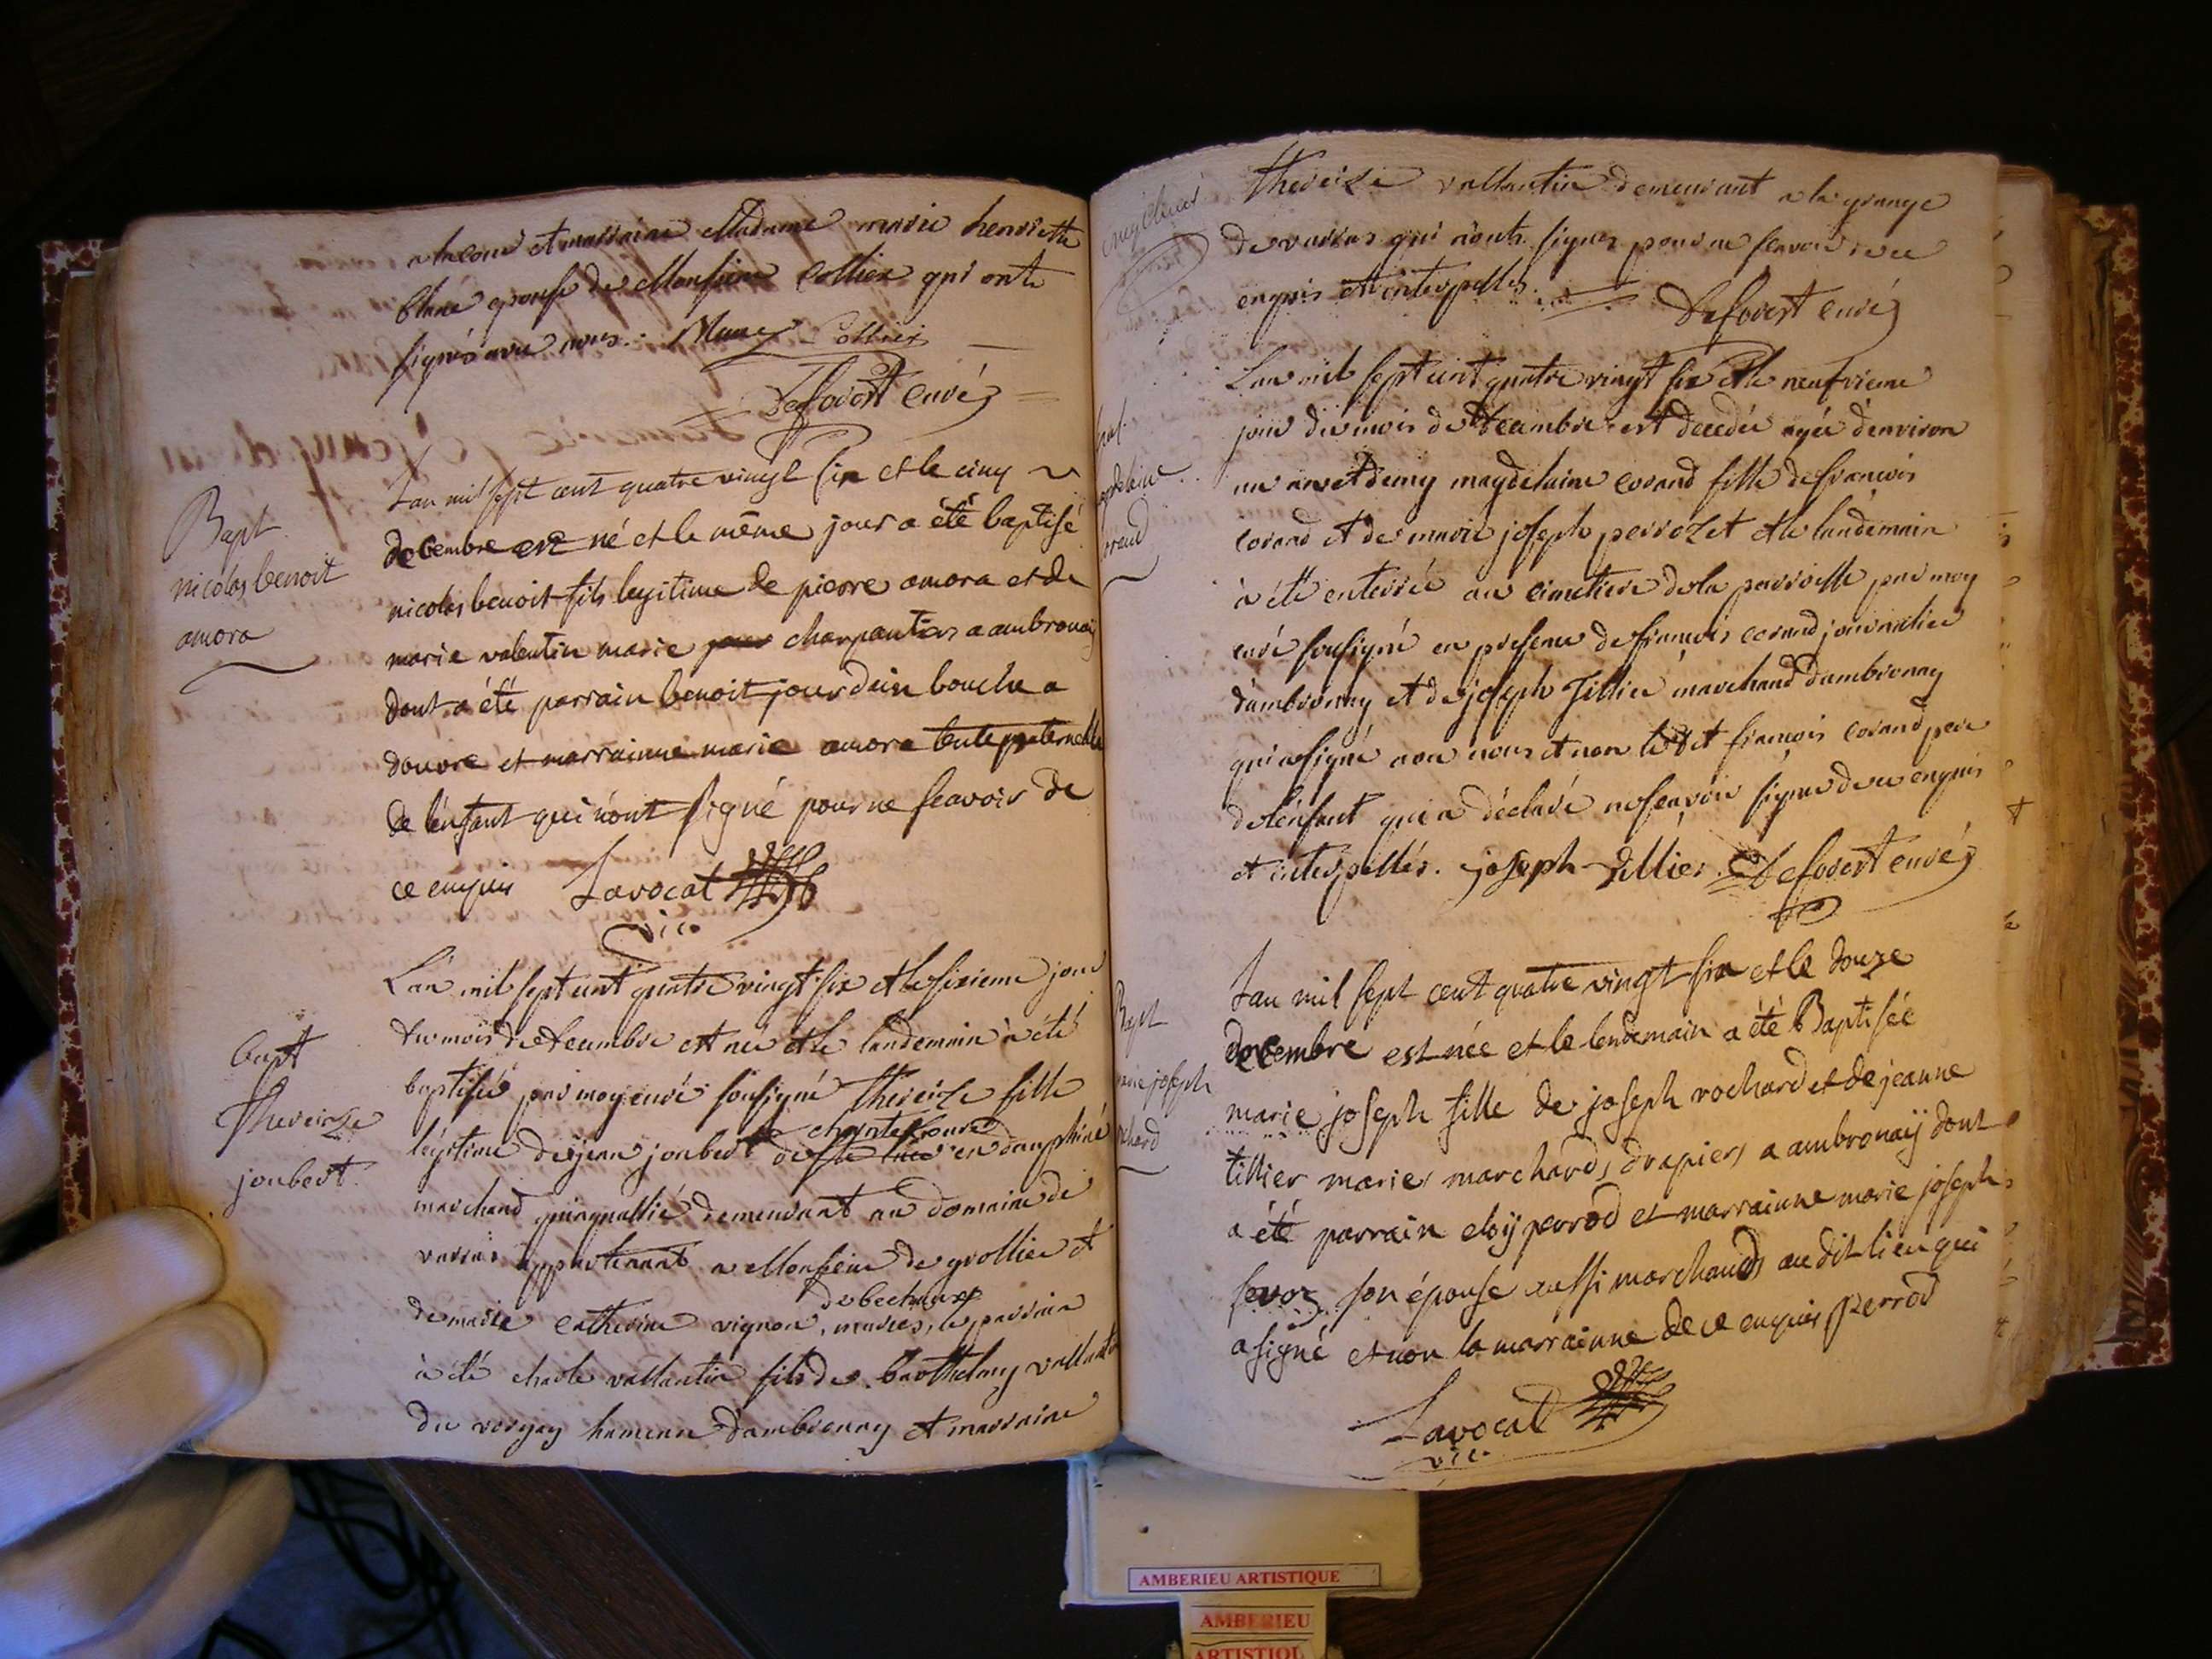 a la cour et marraine Madame marie henriette
blanc epouse de Monsieur Collier qui ont
signés avec nous. Collier
Deforest curé
Bapt
nicolas benoit
amora
Lan mil sept cent quatre vingt six et le cinq
decembre est né et le même jour a été baptisé
nicolas benoit fils legitime de pierre amora et de
marie valentin marie charpantier a ambronay
dont a été parrain benoit jourdain bouche a
douvre et marrainne marie amora tente paternelle
de lenfant qui nont signé pour ne scavoir de
ce enquis Lavocat
vic
bapt
Thereize
joubert
Lan mil sept cent quatre vingt six et le sixieme jour
du mois de decembre est née et le landemain à été
baptisée par moy curé sousigné thereize fille
légitime de jean joubert de chantelouve en dauphiné
marchand quinquallié demeurant au domaine de
varras appartenant a Monsieur de grollier et
de marie catherine vignon, de bechaux mariés, le parrain
à été charle vallantin fils de barthelmy vallantin
du vorgey hameau dambronay et marraine
thereize vallantin demeurant a la grange
de varras qui n'ont signés pour ne scavoir de ce
enquis et interpellés.
Deforest curé
Lan mil sept cent quatre vingt six et le neufvieme
jour du mois de decembre est decedée agée denviron
un an et demy magdelaine corand fille de francois
corand et de marie joseph perrozet et le landemain
à été enterrée au cimetiere de la parroisse par moy
curé sousigné en presence de francois corand journalier
dambronay et de joseph Tillier marchand dambronay
qui a signé avec nous et non ledit francois corand pere
de lenfant qui a déclaré ne scavoir signer de ce enquis
et interpellés. joseph Tillier Deforest curé
Bapt
marie joseph
rochard
Lan mil sept cent quatre vingt six et le douze
decembre est née et le lendemain a été Baptisée
marie joseph fille de joseph rochard et de jeanne
tillier mariés marchands drapiers a ambronaÿ dont
a été parrain eloÿ perrod et marrainne marie joseph
sevoz son épouse aussi marchands au dit lieu qui
a signé et non la marrainne de ce enquis Perrod
Lavocat
vic.
AMBERIEU ARTISTIQUE
AMBERIEU
ARTISTIQUE